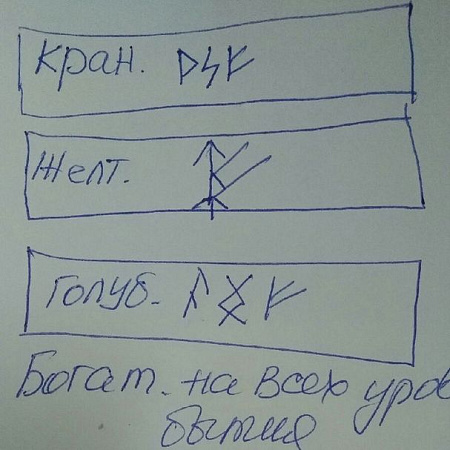 Кран. ᚦᛋᚠ
Желт.
Голуб. ᛝ ᚠ
Богат. на всех уров
бытия